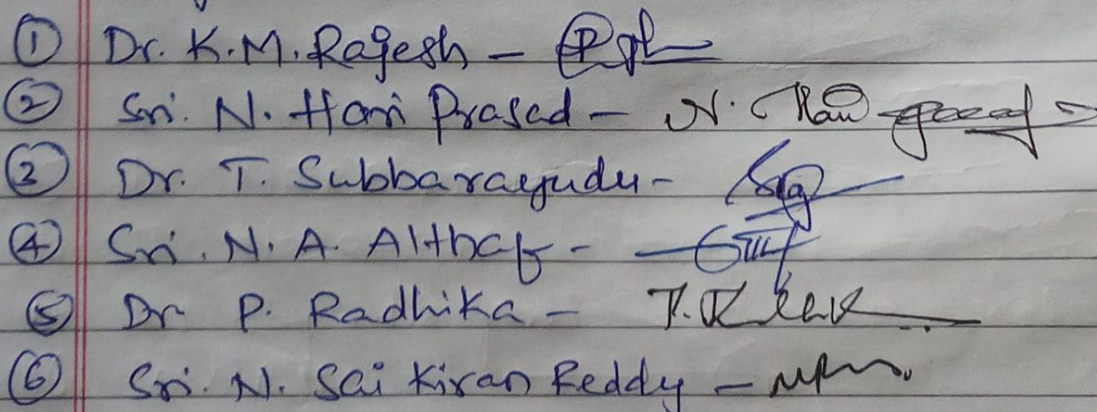 ① Dr. K.M. Rajesh -
② Sri. N. Hari Prasad - N. Hari
③ Dr. T. Subbarayudu -
④ Sri. N. A. Althaf -
⑤ Dr P. Radhika -
⑥ Sri. N. Sai Kiran Reddy -